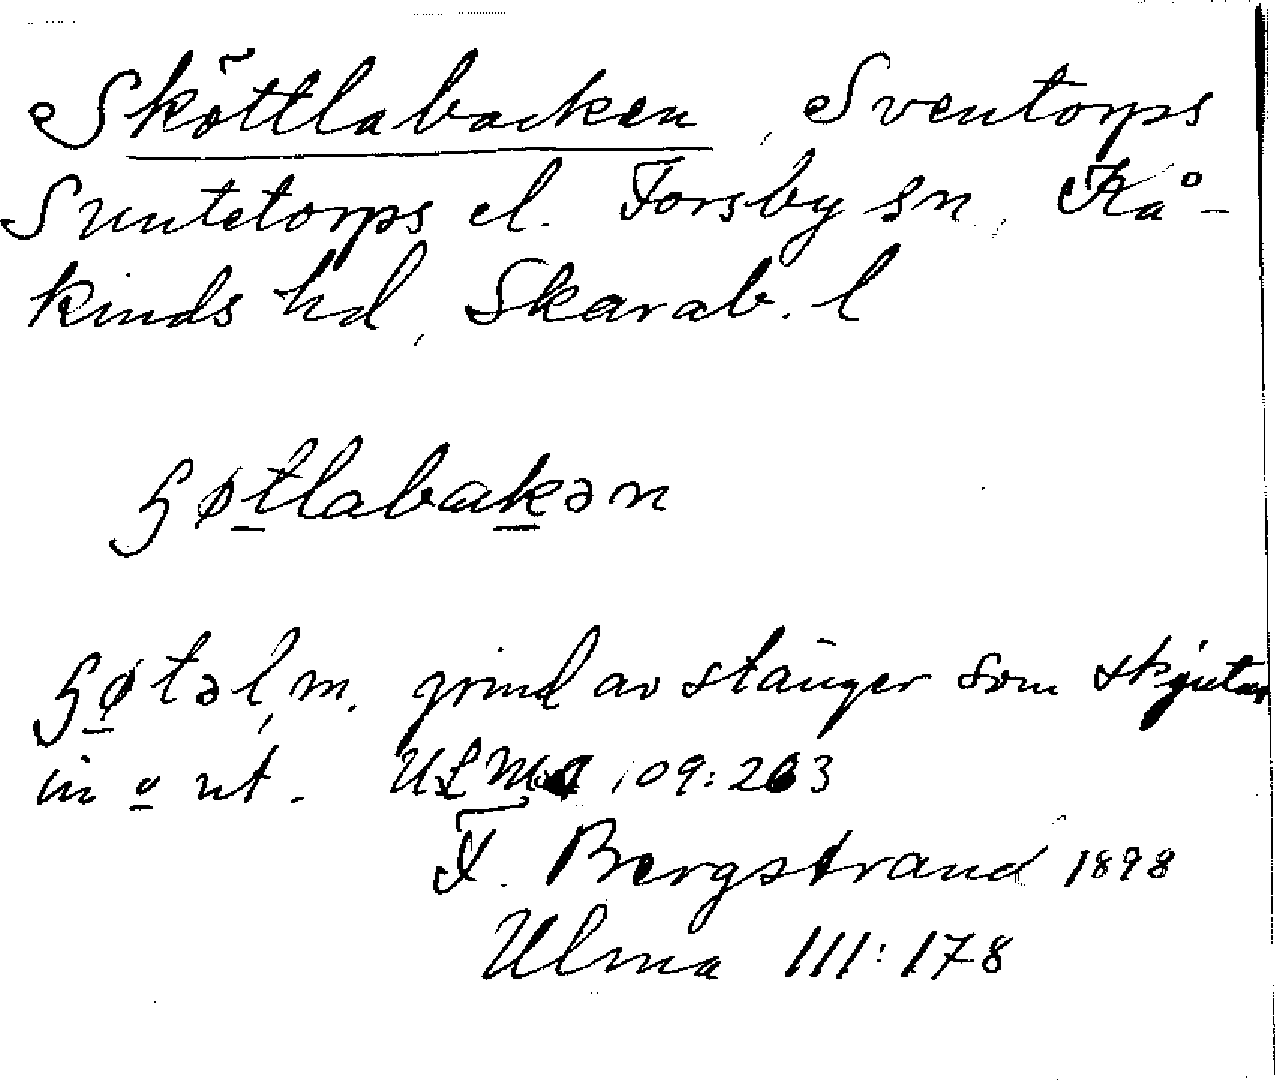 Sköttlabacken, Sventorps
Suntetorps el. Forsby sn, Kå-
kinds hd, Skarab. l
ɧøtlabakən
ɧøtəl, m. grind av stänger som skjutas
in o ut. ULMA 109:263
F. Bergstrand 1898
Ulma 111:178